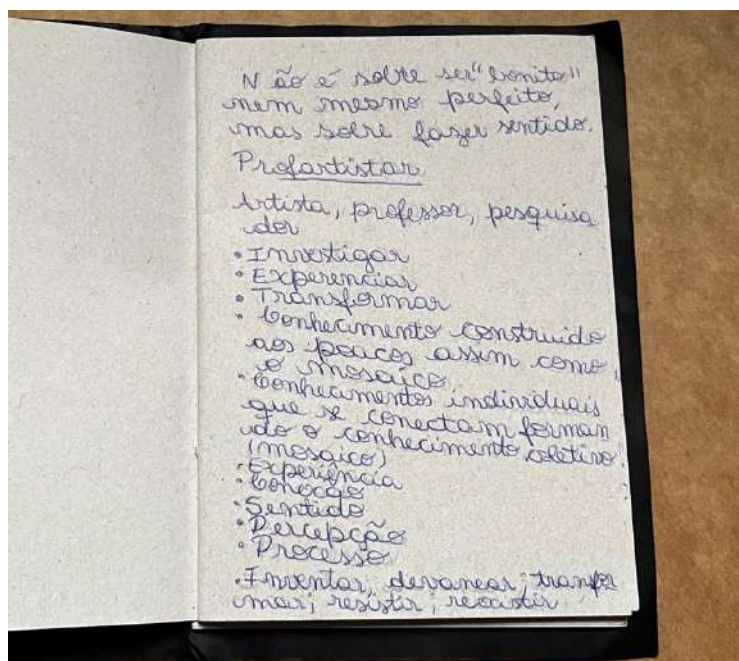 Não é sobre ser "bonito"
nem mesmo perfeito,
mas sobre fazer sentido.
Profartistar
Artista, professor, pesquisa
dor
• Investigar
• Experenciar
• Transformar
• Conhecimento construido
aos poucos assim como
o mosaico.
• Conhecimentos individuais
que se conectam forman
do o conhecimento coletivo!
(mosaico)
• Experiência
• Conexão
• Sentido
• Percepção
• Processo
• Inventar, devanear; transfor
mar; resistir; reexistir